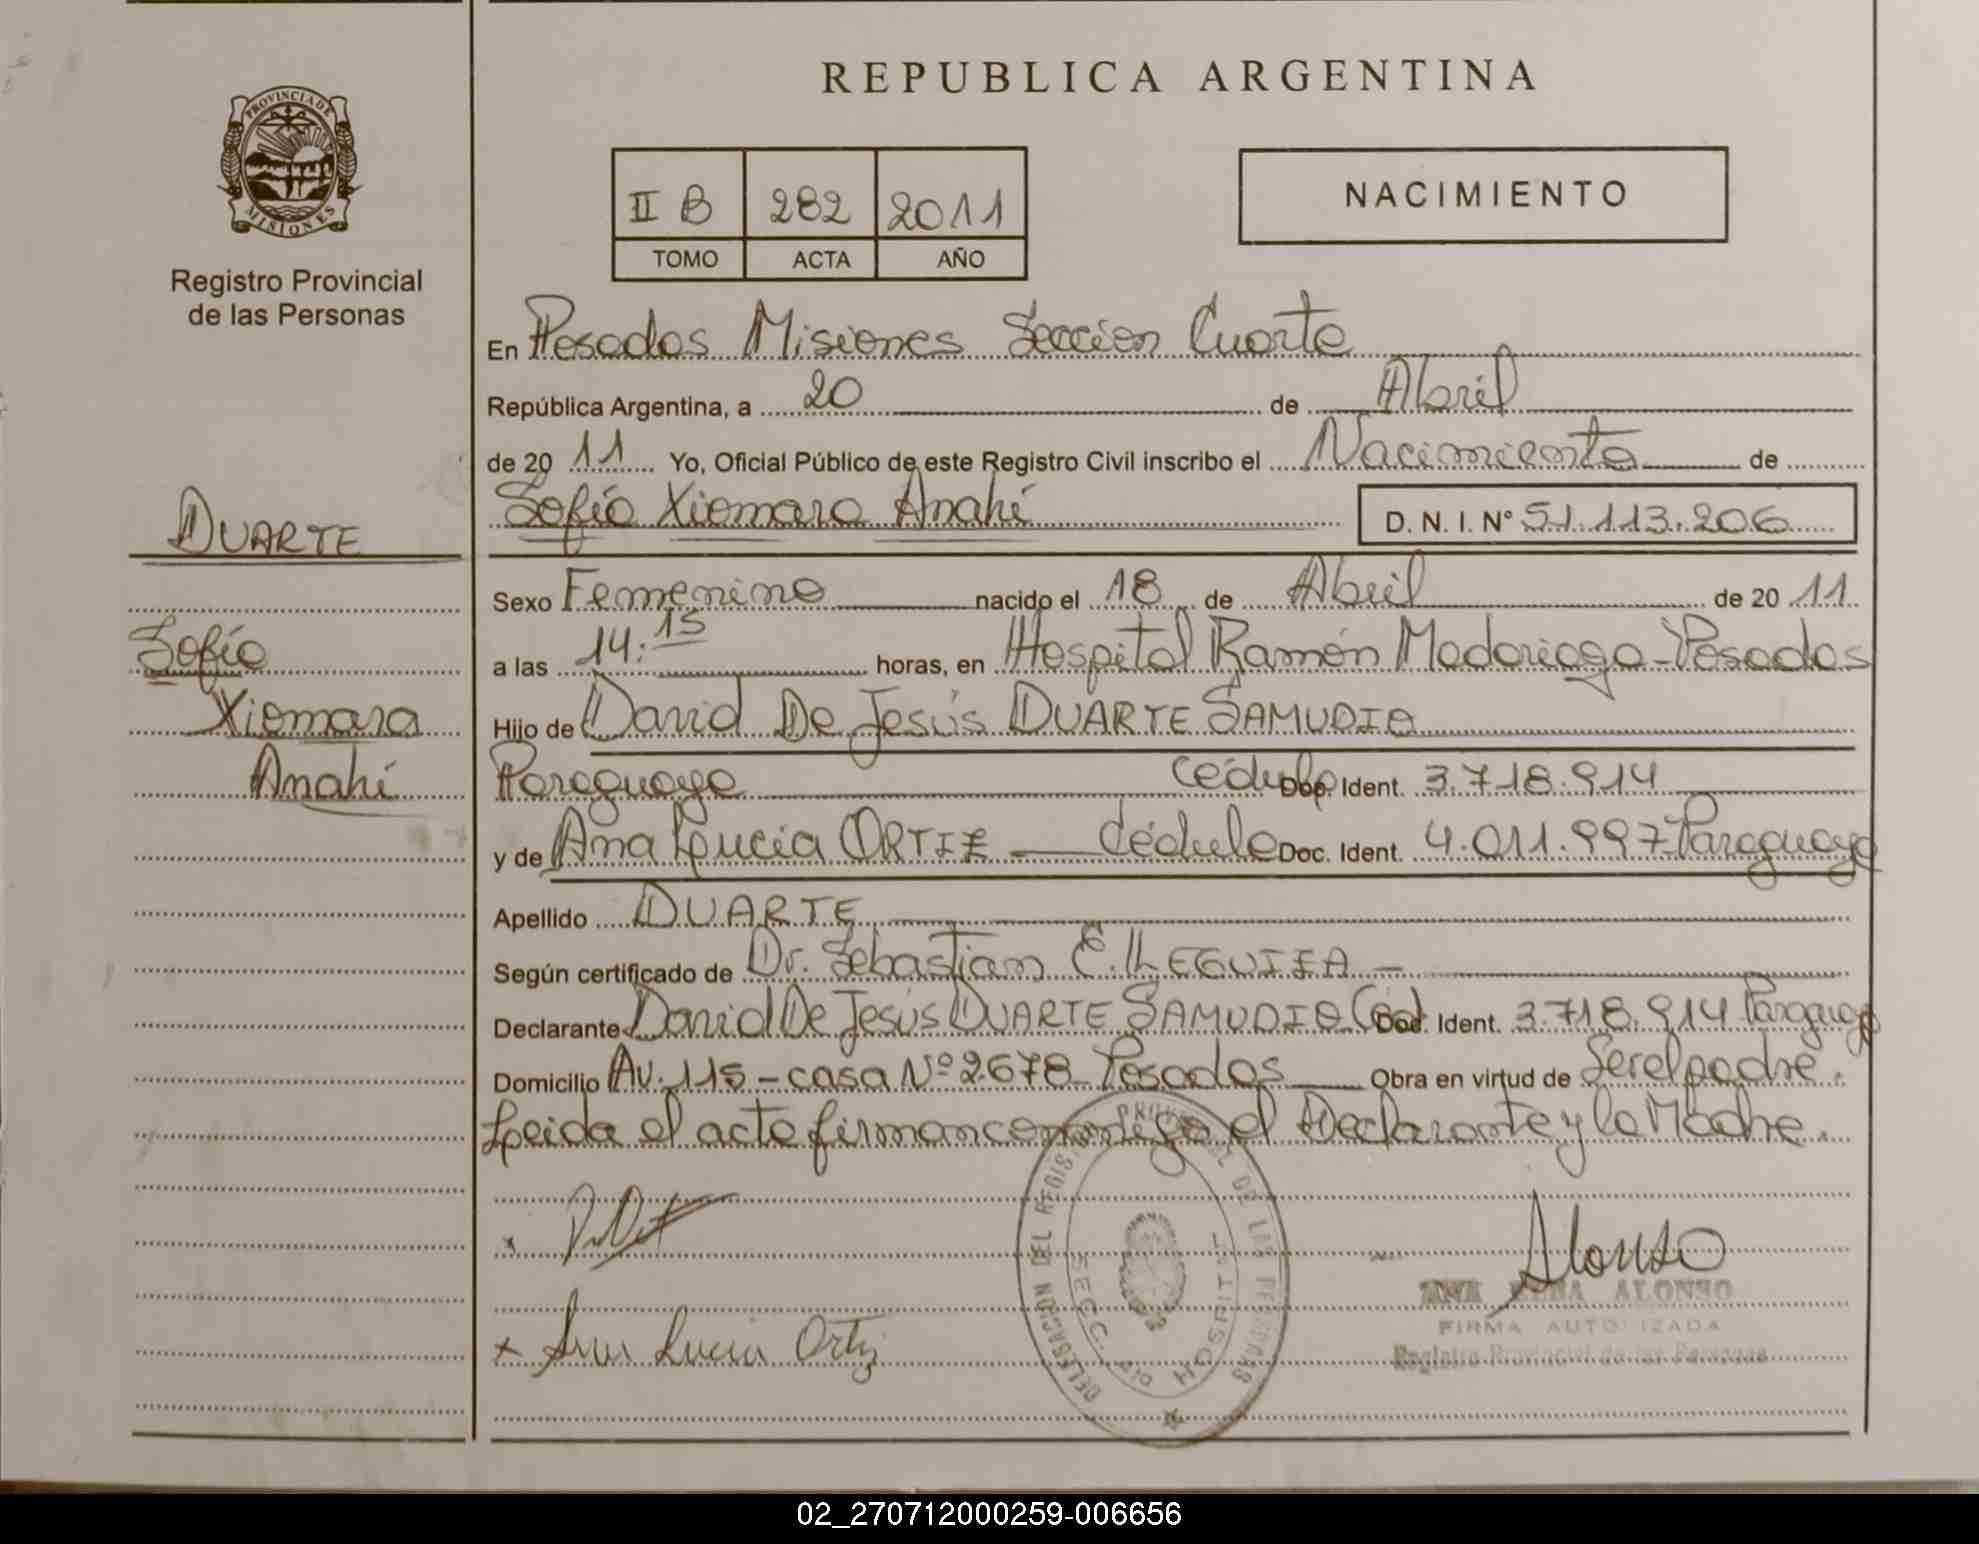 REPUBLICA ARGENTINA
PROVINCIA DE MISIONES
Registro Provincial
de las Personas
II B 282 2011
TOMO ACTA AÑO
NACIMIENTO
En Posadas Misiones Sección Cuarta
República Argentina, a 20 de Abril
de 2011 Yo, Oficial Público de este Registro Civil inscribo el Nacimiento de
Sofía Xiomara Anahí D. N. I. N° 51.113.206
DUARTE
Sofía
Xiomara
Anahí
Sexo Femenino nacido el 18 de Abril de 2011
a las 14:15 horas, en Hospital Ramón Madariaga - Posadas
Hijo de David De Jesús DUARTE SAMUDIO
Paraguaya Cédula Doc. Ident. 3.718.914
y de Ana Lucia ORTIZ — Cédula Doc. Ident. 4.011.997 Paraguaya
Apellido DUARTE
Según certificado de Dr. Sebastian E.
Declarante David De Jesús DUARTE SAMUDIO Céd Doc. Ident. 3.718.914 Paraguaya
Domicilio Av. 115 - casa Nº 2678 Posadas Obra en virtud de Ser el padre.
Leida el acta firman conmigo el Declarante y la Madre.
x
Alonso
ANA ALONSO
FIRMA AUTORIZADA
Registro Provincial de las Personas
x Ana Lucia Ortiz
DELEGACION DEL REGISTRO PROVINCIAL DE LAS PERSONAS
SECC. HOSPITAL
02_270712000259-006656